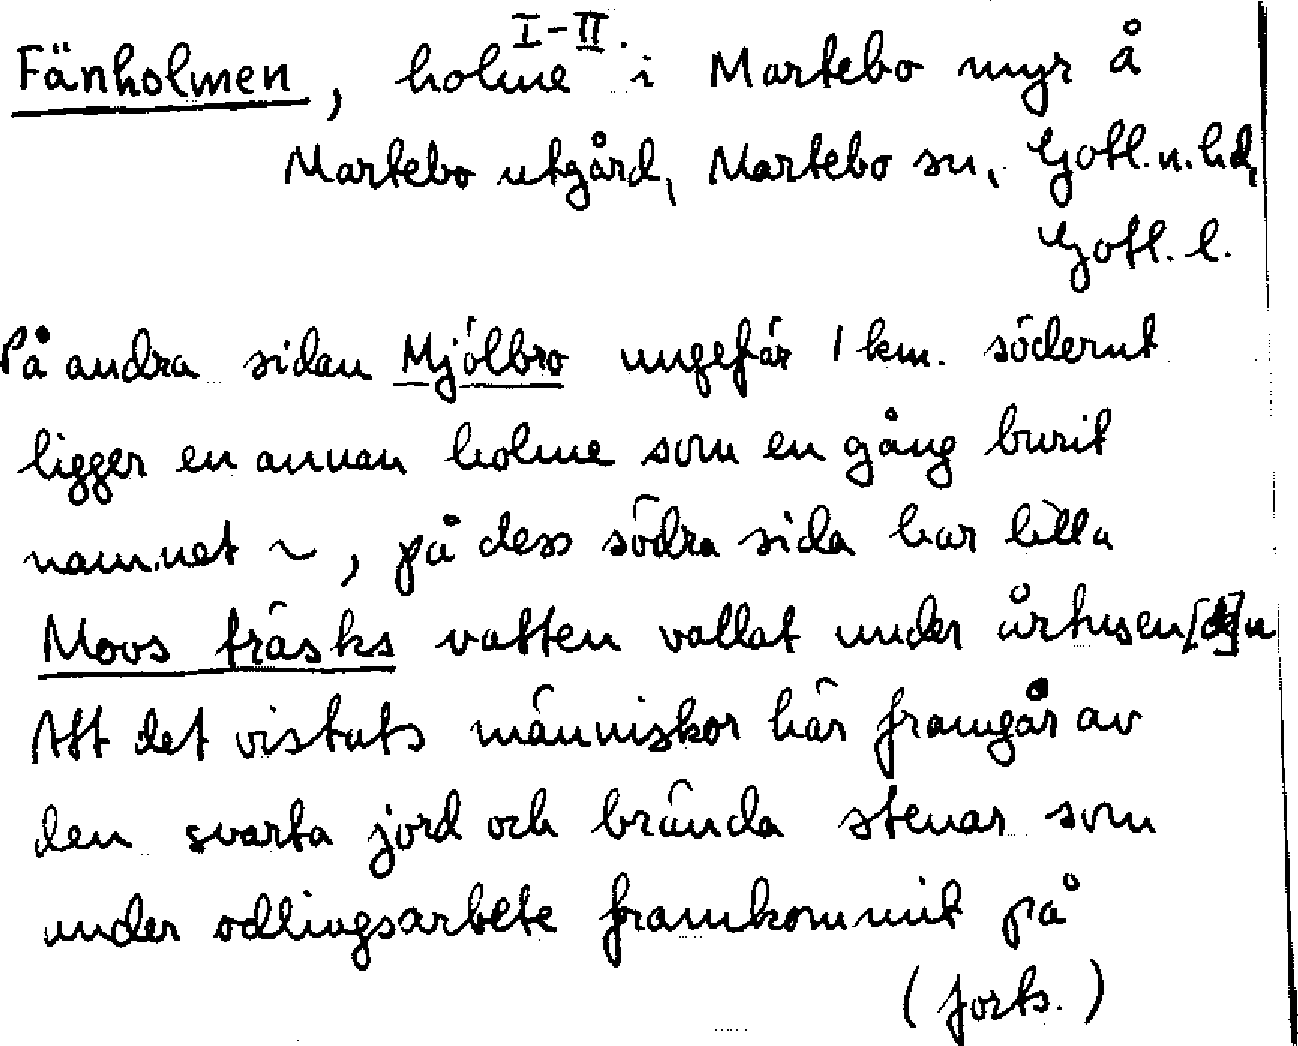 I-II.
Fänholmen, holme i Martebo myr å
Martebo utgård, Martebo sn, Gotl. n. hd,
Gotl. l.
På andra sidan Mjölbro ungefär 1 km. söderut
ligger en annan holme som en gång burit
namnet ~, på dess södra sida har lilla
Moos träsks vatten vallat under årtusen[de]n
Att det vistats människor här framgår av
den svarta jord och brända stenar som
under odlingsarbete framkommit på
(forts.)